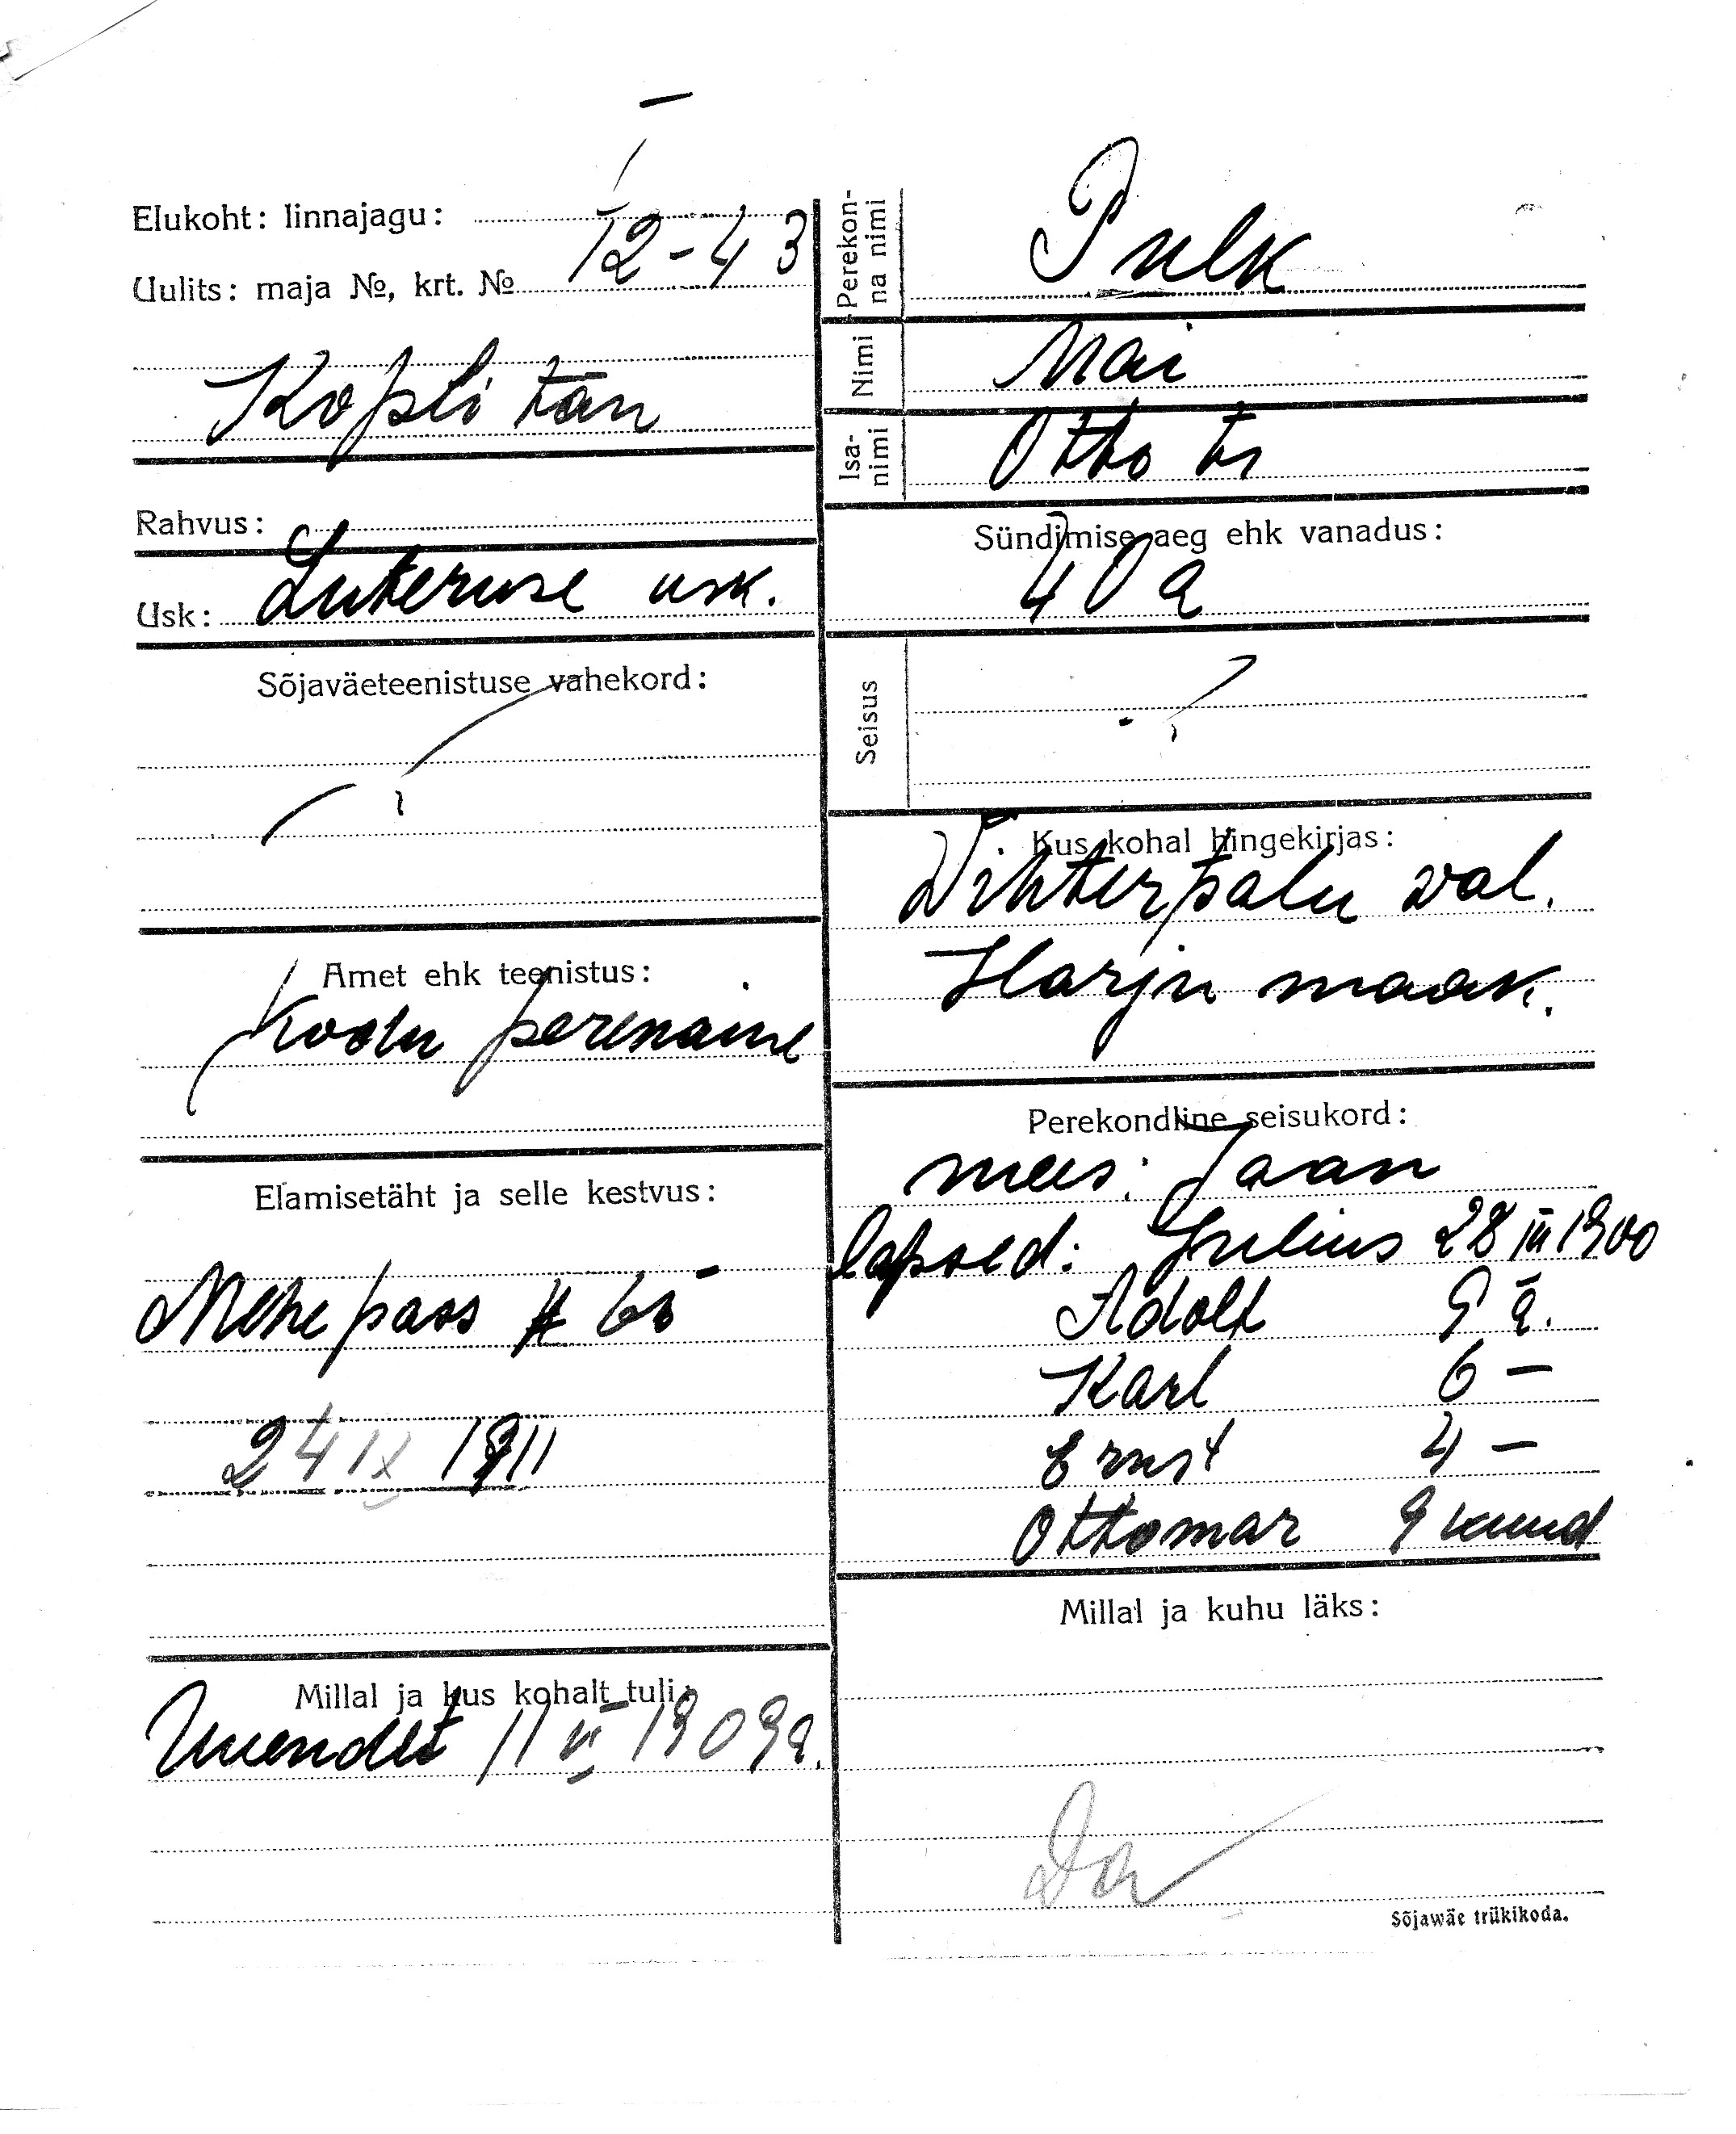 Elukoht: linnajagu:
Uulits: maja №, krt. № 12-43
Kopli tän
Rahvus:
Usk: Luteruse usk.
Sõjaväeteenistuse vahekord:
Amet ehk teenistus:
Kodu perenaine
Elamisetäht ja selle kestvus:
Mehe pass
24 IX 1911
Millal ja kus kohalt tuli:
Uuendet 11 VI 1909 a.
Perekon-
na nimi
Pulk
Nimi Mai
Isa-
nimi
Otto tr
Sündimise aeg ehk vanadus:
40 a
Seisus
Kus kohal hingekirjas:
Vihterpalu val.
Harju maak.
Perekondline seisukord:
mees: Jaan
lapsed: Julius 28 III 1900
Adolf 9 a.
Karl 6 —
Ernst 4 —
Ottomar 9 kuud
Millal ja kuhu läks:
Sõjawäe trükikoda.